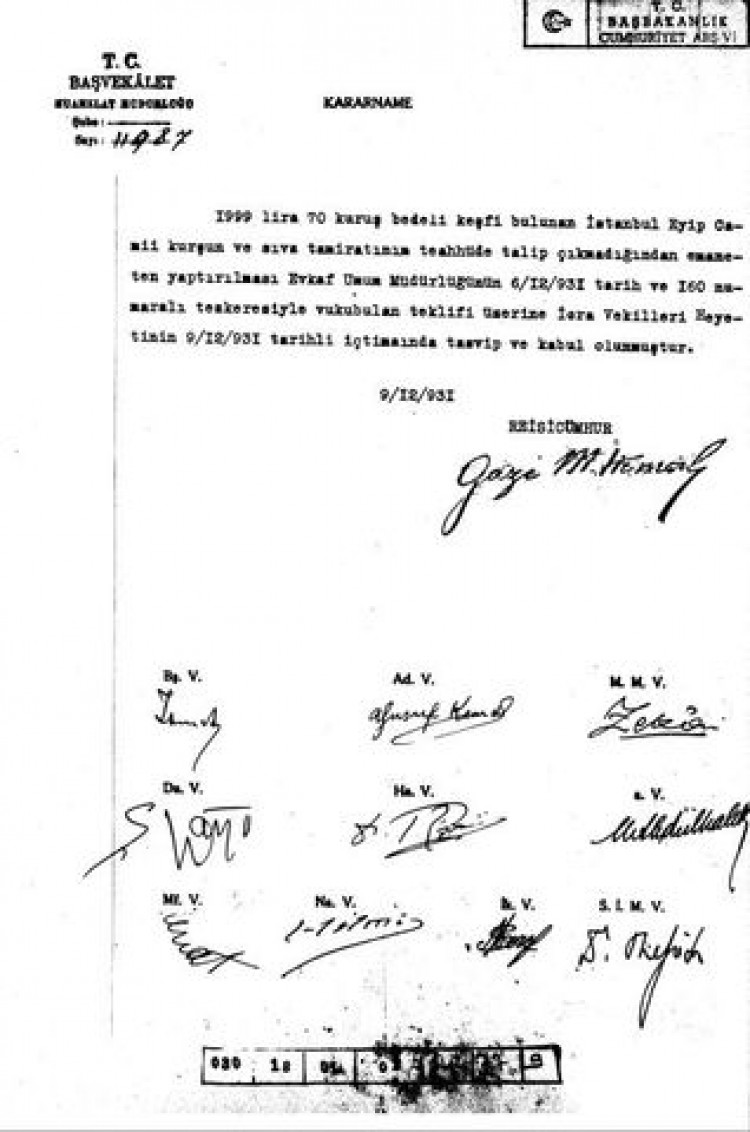 T. C.
BAŞBAKANLIK
CUMHURİYET ARŞİVİ
T. C.
BAŞVEKÂLET
MUAMELAT MÜDÜRLÜĞÜ
Şube:
Sayı: 11987
KARARNAME
1999 lira 70 kuruş bedeli keşfi bulunan İstanbul Eyip Ca-
mii kurşun ve sıva tamiratının teahhüde talip çıkmadığından emane-
ten yaptırılması Evkaf Umum Müdürlüğünün 6/I2/93I tarih ve I60 nu-
maralı teskeresiyle vukubulan teklifi üzerine İcra Vekilleri Heye-
tinin 9/I2/93I tarihli içtimaında tasvip ve kabul olunmuştur.
9/I2/93I
REİSİCÜMHUR
Gazi M. Kemal
Bş. V. Ad. V. M. M. V.
İsmet Yusuf Kemal Zekâi
Da. V. Ha. V. V.
Ş Kaya Dr. T. Rüştü M Abdülhalik
Mf. V. Na. V. İk. V. S. İ. M. V.
Esat Hilmi Dr. Refik
030 18